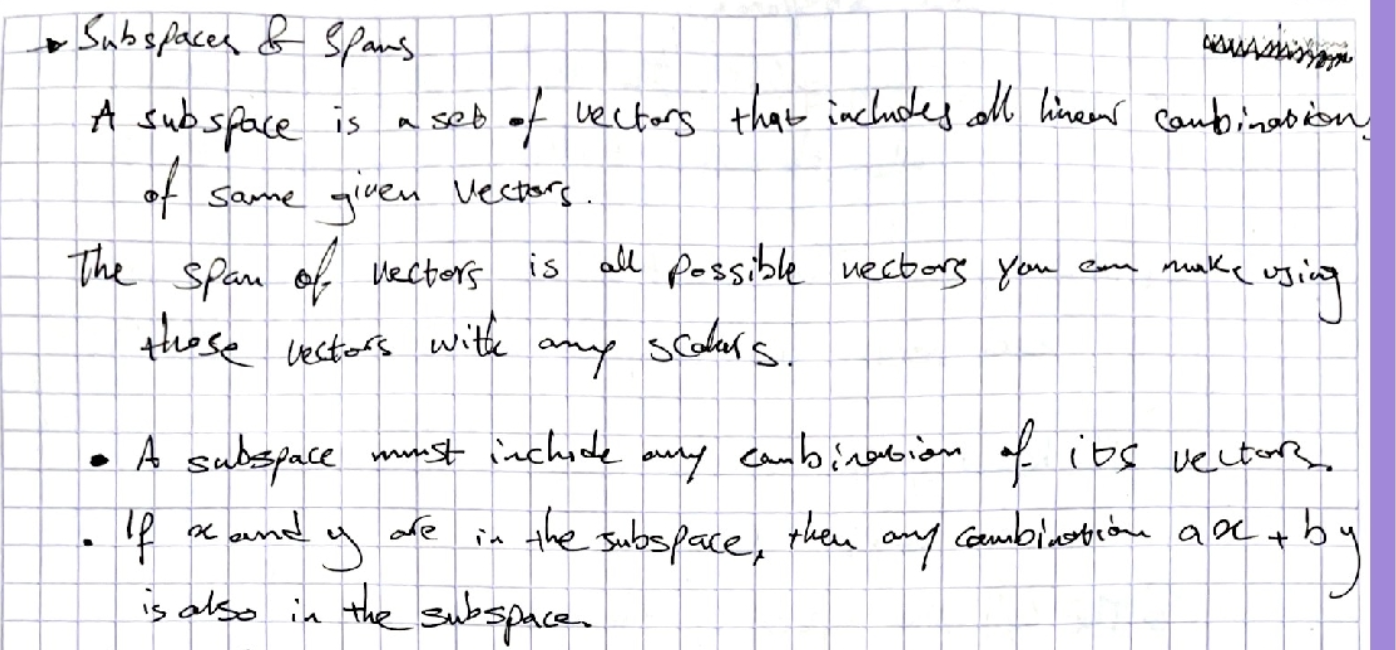 → Subspaces & Spans
A subspace is a set of vectors that includes all linear combination
of same given vectors.
The span of vectors is all possible vectors you can make using
those vectors with any scalars.
• A subspace must include any combination of its vectors.
• If x and y are in the subspace, then any combination ax + by
is also in the subspace.